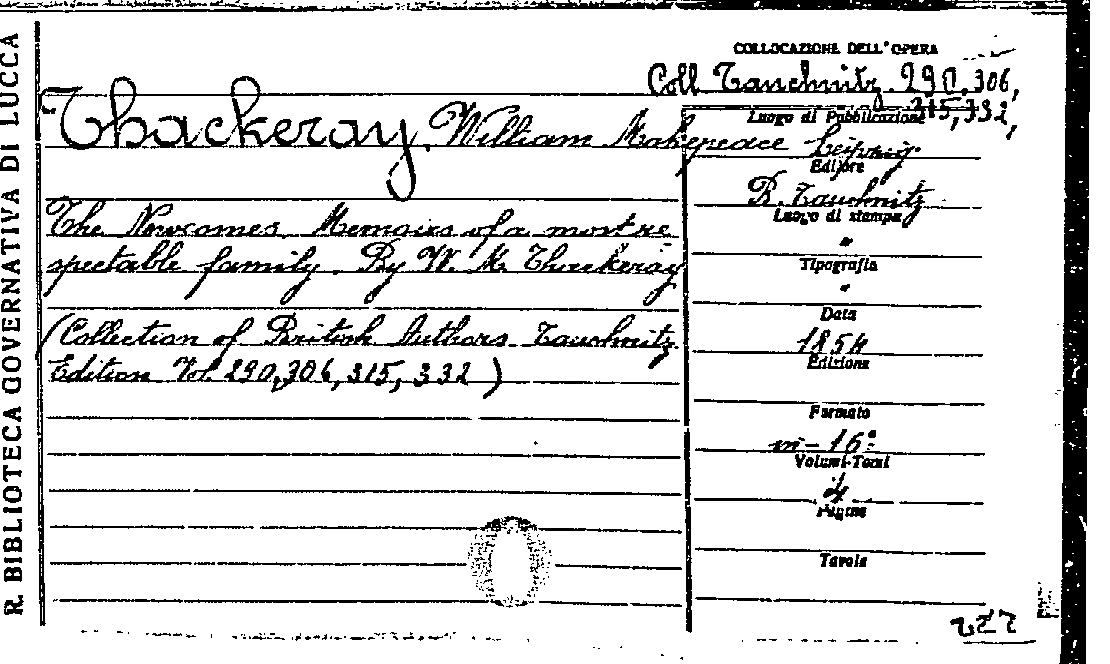 R. BIBLIOTECA GOVERNATIVA DI LUCCA
COLLOCAZIONE DELL'OPERA
Coll. Tauchnitz. 290, 306,
315, 332,
Thackeray, William Makepeace
Luogo di Pubblicazione
Leipzig
Editore
B. Tauchnitz
Luogo di stampa
"
Tipografia
"
Data
1854
Edizione
Formato
in-16°
Volumi-Tomi
4
Pagine
Tavole
The Newcomes. Memoirs of a most re
spectable family. By W. M. Thackeray
(Collection of British Authors Tauchnitz
Edition Vol. 290, 306, 315, 332)